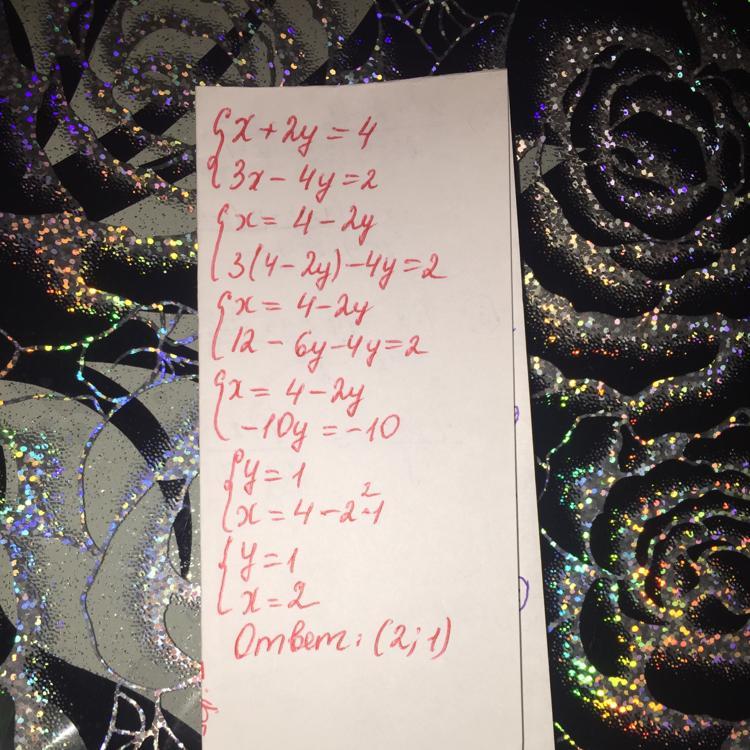 {x + 2y = 4
{3x - 4y = 2
{x = 4 - 2y
{3(4 - 2y) - 4y = 2
{x = 4 - 2y
{12 - 6y - 4y = 2
{x = 4 - 2y
{-10y = -10
{y = 1
{x = 4 - 2·1
2
{y = 1
{x = 2
Ответ: (2; 1)